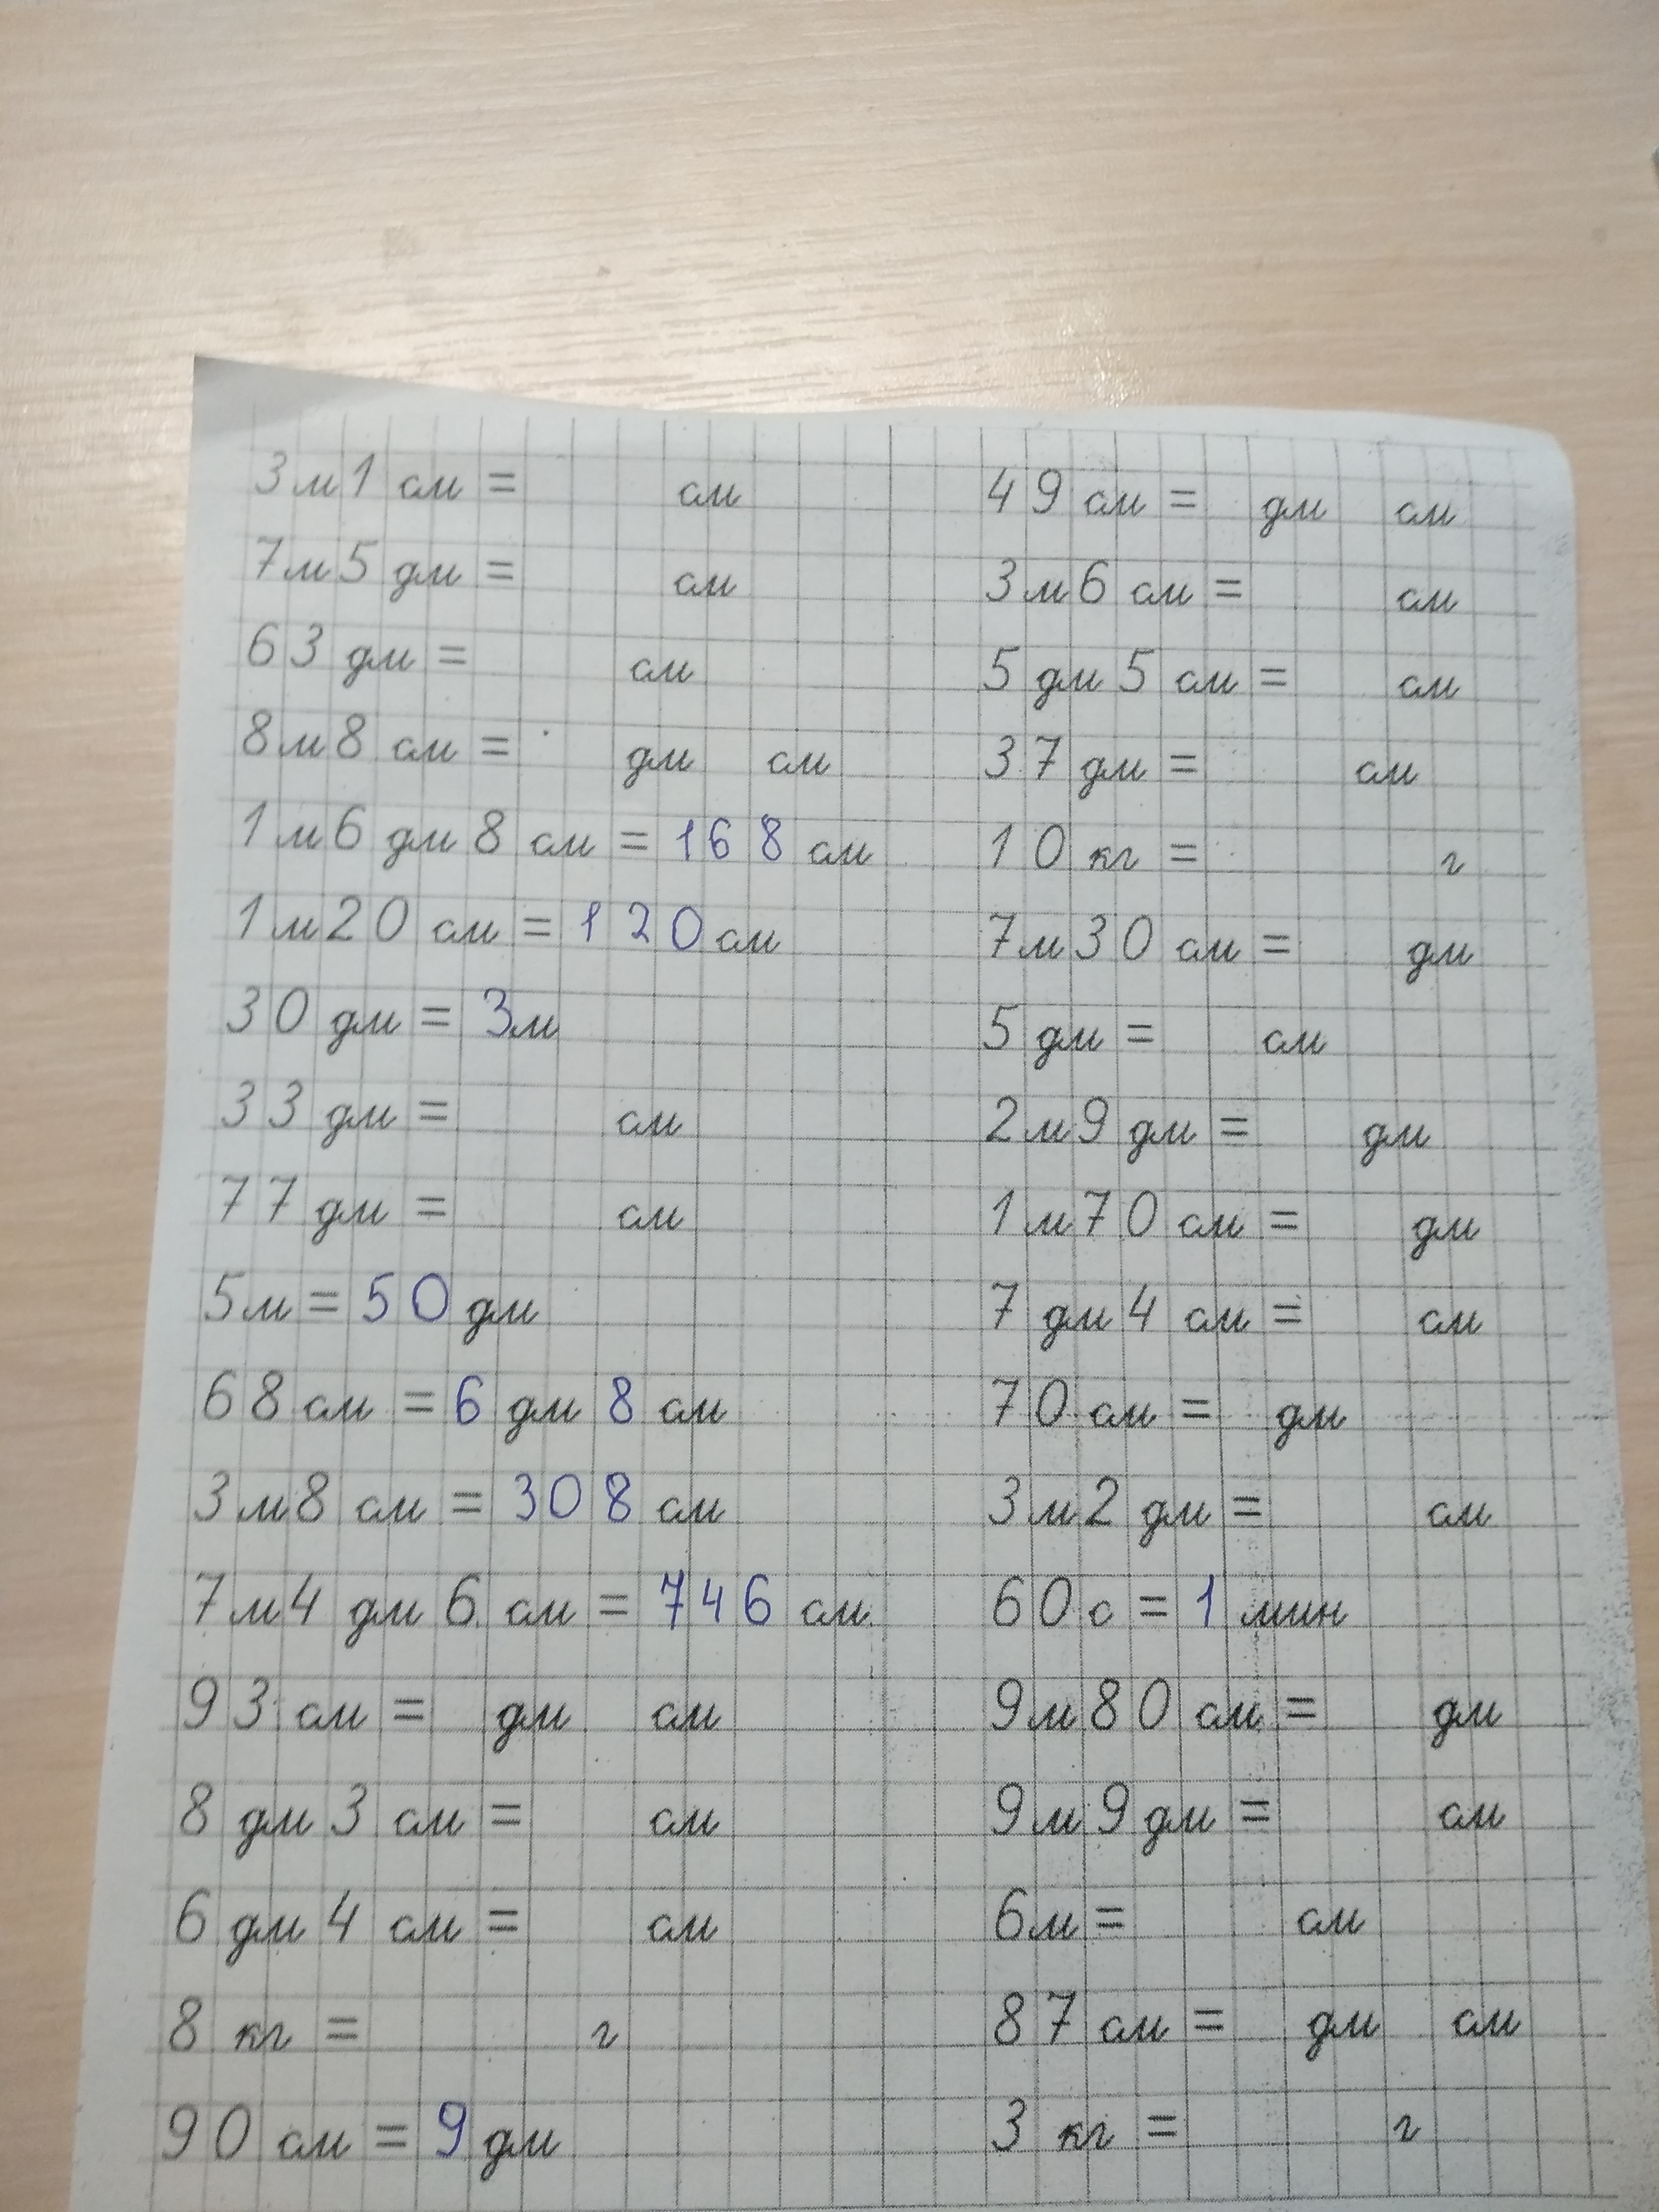 3 м 1 см = см
7 м 5 дм = см
63 дм = см
8 м 8 см = дм см
1 м 6 дм 8 см = 168 см
1 м 20 см = 120 см
30 дм = 3 м
33 дм = см
77 дм = см
5 м = 50 дм
68 см = 6 дм 8 см
3 м 8 см = 308 см
7 м 4 дм 6 см = 746 см
93 см = дм см
8 дм 3 см = см
6 дм 4 см = см
8 кг = г
90 см = 9 дм
49 см = дм см
3 м 6 см = см
5 дм 5 см = см
37 дм = см
10 кг = г
7 м 30 см = дм
5 дм = см
2 м 9 дм = дм
1 м 70 см = дм
7 дм 4 см = см
70 см = дм
3 м 2 дм = см
60 с = 1 мин
9 м 80 см = дм
9 м 9 дм = см
6 м = см
87 см = дм см
3 кг = г